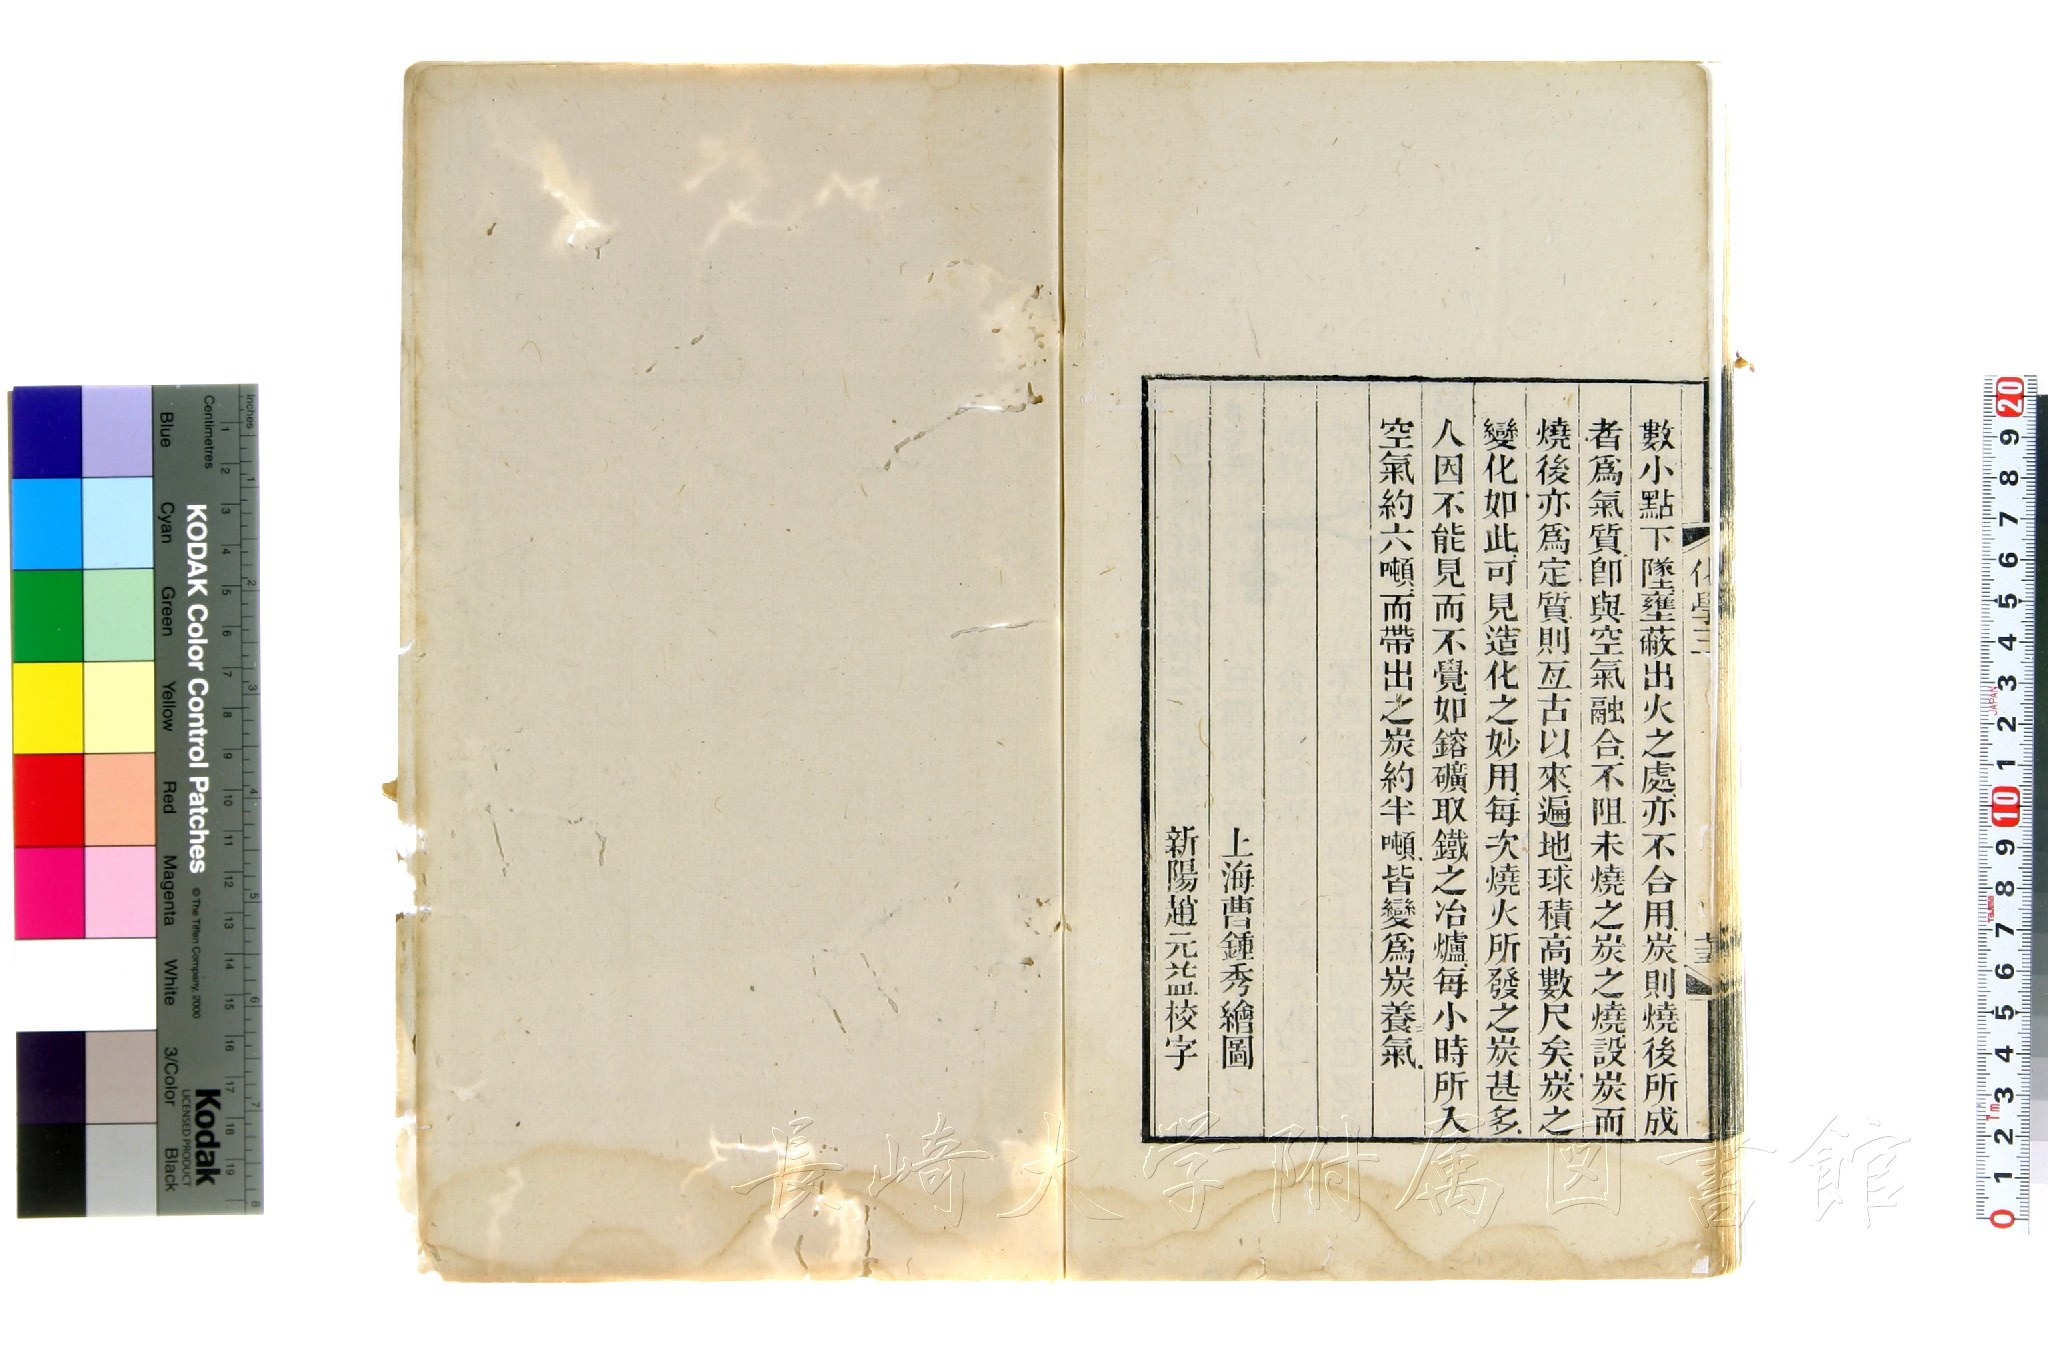 數小點下墜壅蔽出火之處亦不合用炭則燒後所成
者爲氣質卽與空氣融合不阻未燒之炭之燒設炭而
燒後亦爲定質則亙古以來遍地球積高數尺矣炭之
變化如此可見造化之妙用每次燒火所發之炭甚多
人因不能見而不覺如鎔礦取鐵之冶爐每小時所入
空氣約六噸而帶出之炭約半噸皆變爲炭養氣
上海曹鍾秀繪圖
新陽趙元益校字
化學三
長崎大学附属図書館
KODAK Color Control Patches
© The Tiffen Company, 2000
Kodak
LICENSED PRODUCT
Inches
Centimetres
Blue
Cyan
Green
Yellow
Red
Magenta
White
3/Color
Black
1 2 3 4 5 6 7 8 9 10 11 12 13 14 15 16 17 18 19
1 2 3 4 5 6 7 8
20 9 8 7 6 5 4 3 2 1 10 9 8 7 6 5 4 3 2 1 0
JAPAN